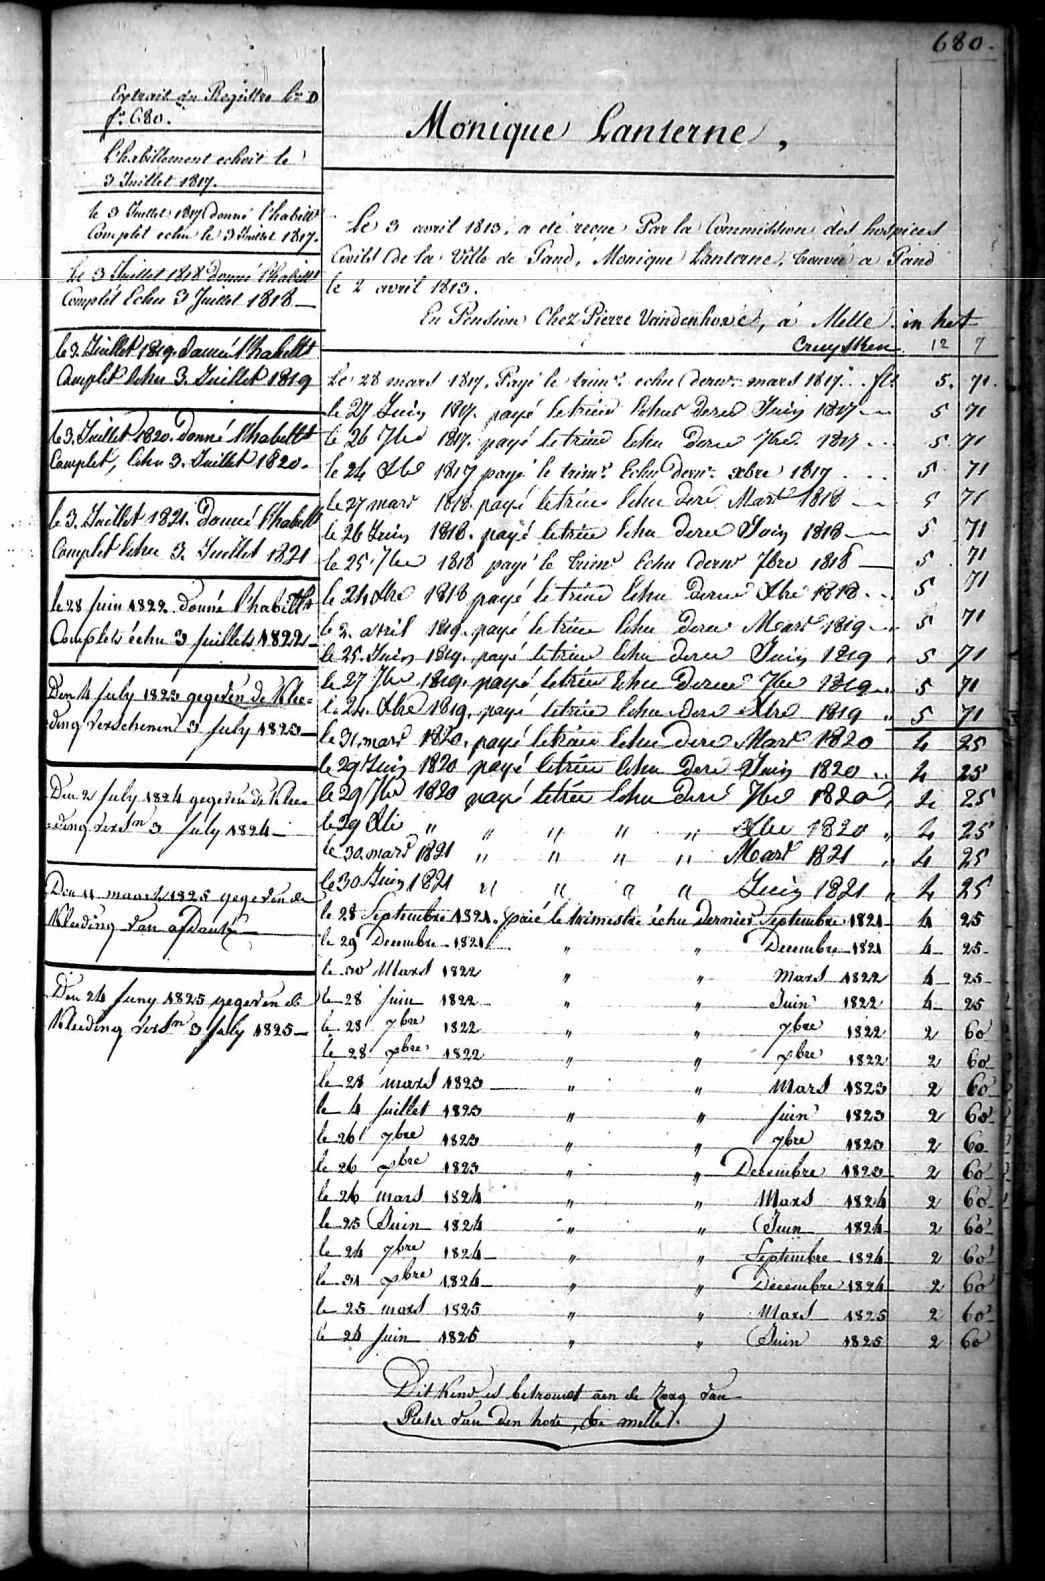 680.
Extrait du Registre Cn D
fo. 680.
L'habillement echoit le
3 Juillet 1817.
le 3 Juillet 1817 donné l'habillt
Complet echu le 3 Juillet 1817.
Le 3 Juillet 1818 donné l'habillt
Complèt Echu 3 Juillet 1818
le 3. Juillet 1819. donné l'habillt
Complet Echu 3. Juillet 1819
le 3. Juillet 1820. donné l'habillt
Complet, Echu 3. Juillet 1820.
le 3. Juillet 1821. donné l'habillt
Complet Echu 3. Juillet 1821
le 28 Juin 1822. donné l'habillt
Complet échu 3 Juillet 1822
Den 4 July 1823 gegeven de Klee-
ding verschenen 3 July 1823
Den 2 July 1824 gegeven de Klee-
ding versn 3 July 1824
Den 11 maart 1825 gegeven de
Kleeding van
Den 24 Juny 1825 gegeven de
Kleeding versn 3 July 1825
Monique Lanterne,
Le 3 avril 1813. a été reçue Par la Commission des hospices
Civils de la Ville de Gand, Monique Lanterne, trouvée a Gand
le 2 avril 1813.
En Pension Chez Pierre Vandenhove, à Melle in het
Cruysken 12 7
Le 28 mars 1817. Payé le trimr. echu dernr. mars 1817. fls 5. 71.
le 27 Juin 1817. payé le trim Echu dere Juin 1817 5 71
le 26 7bre 1817. payé le trim Echu dere 7bre 1817 5 71
le 24 Xbre 1817 payé le trimr. Echu dernr. xbre 1817 5 71
le 27 mars 1818. payé le trim Echu dere Mars 1818 5 71
le 26 Juin 1818. payé le trim Echu dere Juin 1818 5 71
le 25 7bre 1818 payé le trimr Echu dernr 7bre 1818 5 71
le 24 Xbre 1818 payé le trim Echu dere Xbre 1818 5 71
le 2. avril 1819. payé le trim Echu dere Mars 1819 5 71
le 25. Juin 1819. payé le trim Echu dere Juin 1819 5 71
le 27 7bre 1819. payé le trim Echu dere 7bre 1819 5 71
le 24. Xbre 1819. payé le trim Echu dere Xbre 1819 5 71
le 31. mars 1820. payé le trim Echu dere Mars 1820 4 25
le 29 Juin 1820 payé le trim Echu dere Juin 1820 4 25
le 29 7bre 1820 payé le trim Echu dere 7bre 1820 4 25
le 29 Xbre " " " " " Xbre 1820 " 4 25
le 30. mars 1821 " " " " Mars 1821 " 4 25
le 30 Juin 1821 " " " " Juin 1821 " 4 25
le 28 Septembre 1821. payé le trimestre échu dernier Septembre 1821 4 25
le 29 Decembre 1821 " " Decembre 1821 4 25
le 30 Mars 1822 " " Mars 1822 4 25
le 28 Juin 1822 " " Juin 1822 4 25
le 28 7bre 1822 " " 7bre 1822 2 60
le 28 xbre 1822 " " xbre 1822 2 60
le 28 mars 1823 " " Mars 1823 2 60
le 4 Juillet 1823 " " Juin 1823 2 60
le 26 7bre 1823 " " 7bre 1823 2 60
le 26 xbre 1823 " " Decembre 1823 2 60
le 26 mars 1824 " " Mars 1824 2 60
le 25 Juin 1824 " " Juin 1824 2 60
le 24 7bre 1824 " " Septembre 1824 2 60
le 31 xbre 1824 " " Decembre 1824 2 60
le 25 mars 1825 " " Mars 1825 2 60
le 24 Juin 1825 " " Juin 1825 2 60
Dit Kind is betrouwt aen de Zorg van
Pieter van den hove, te melle.